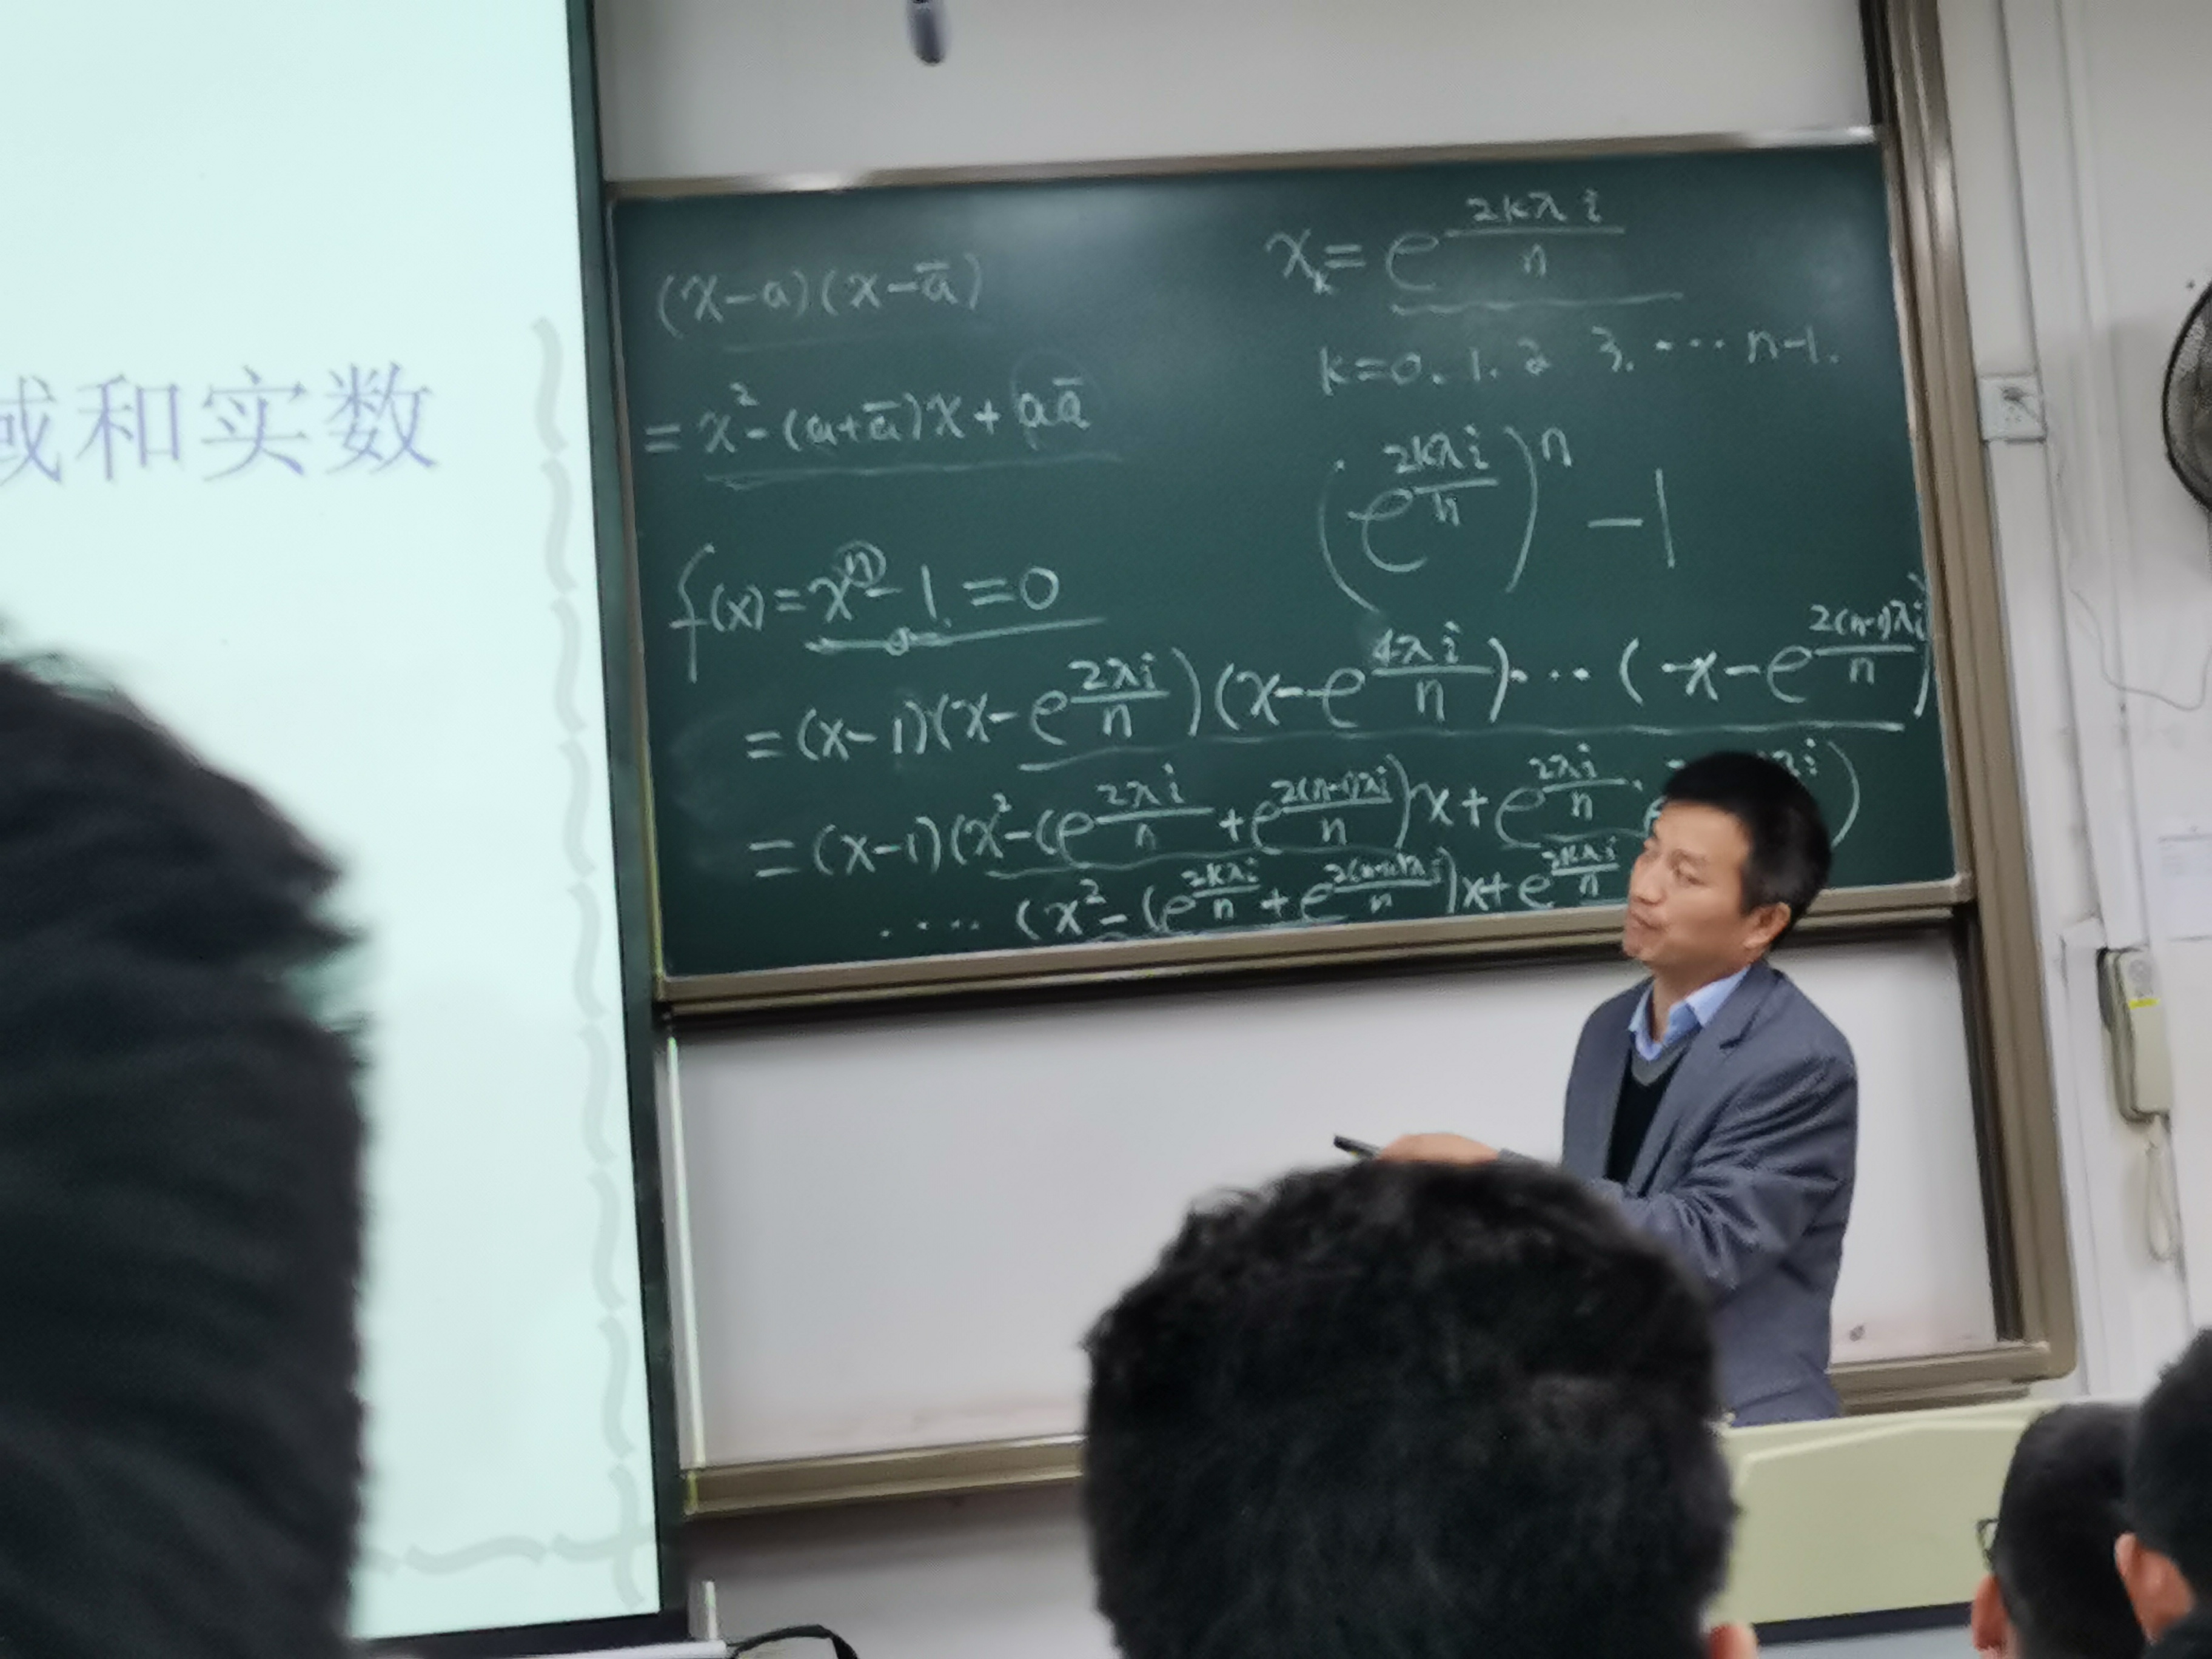 和实数
(x-a)(x-a̅)
= x²-(a+a̅)x+aa̅
f(x)=xⁿ-1=0
x_k = e^{2kπi/n}
k=0.1.2 3.⋯ n-1.
(e^{2kπi/n})ⁿ -1
=(x-1)(x-e^{2πi/n})(x-e^{4πi/n})⋯(x-e^{2(n-1)πi/n})
=(x-1)(x²-(e^{2πi/n}+e^{2(n-1)πi/n})x+e^{2πi/n}·
⋯⋅(x²-(e^{2kπi/n}+e^{2(n-k)πi/n})x+e^{2kπi/n}